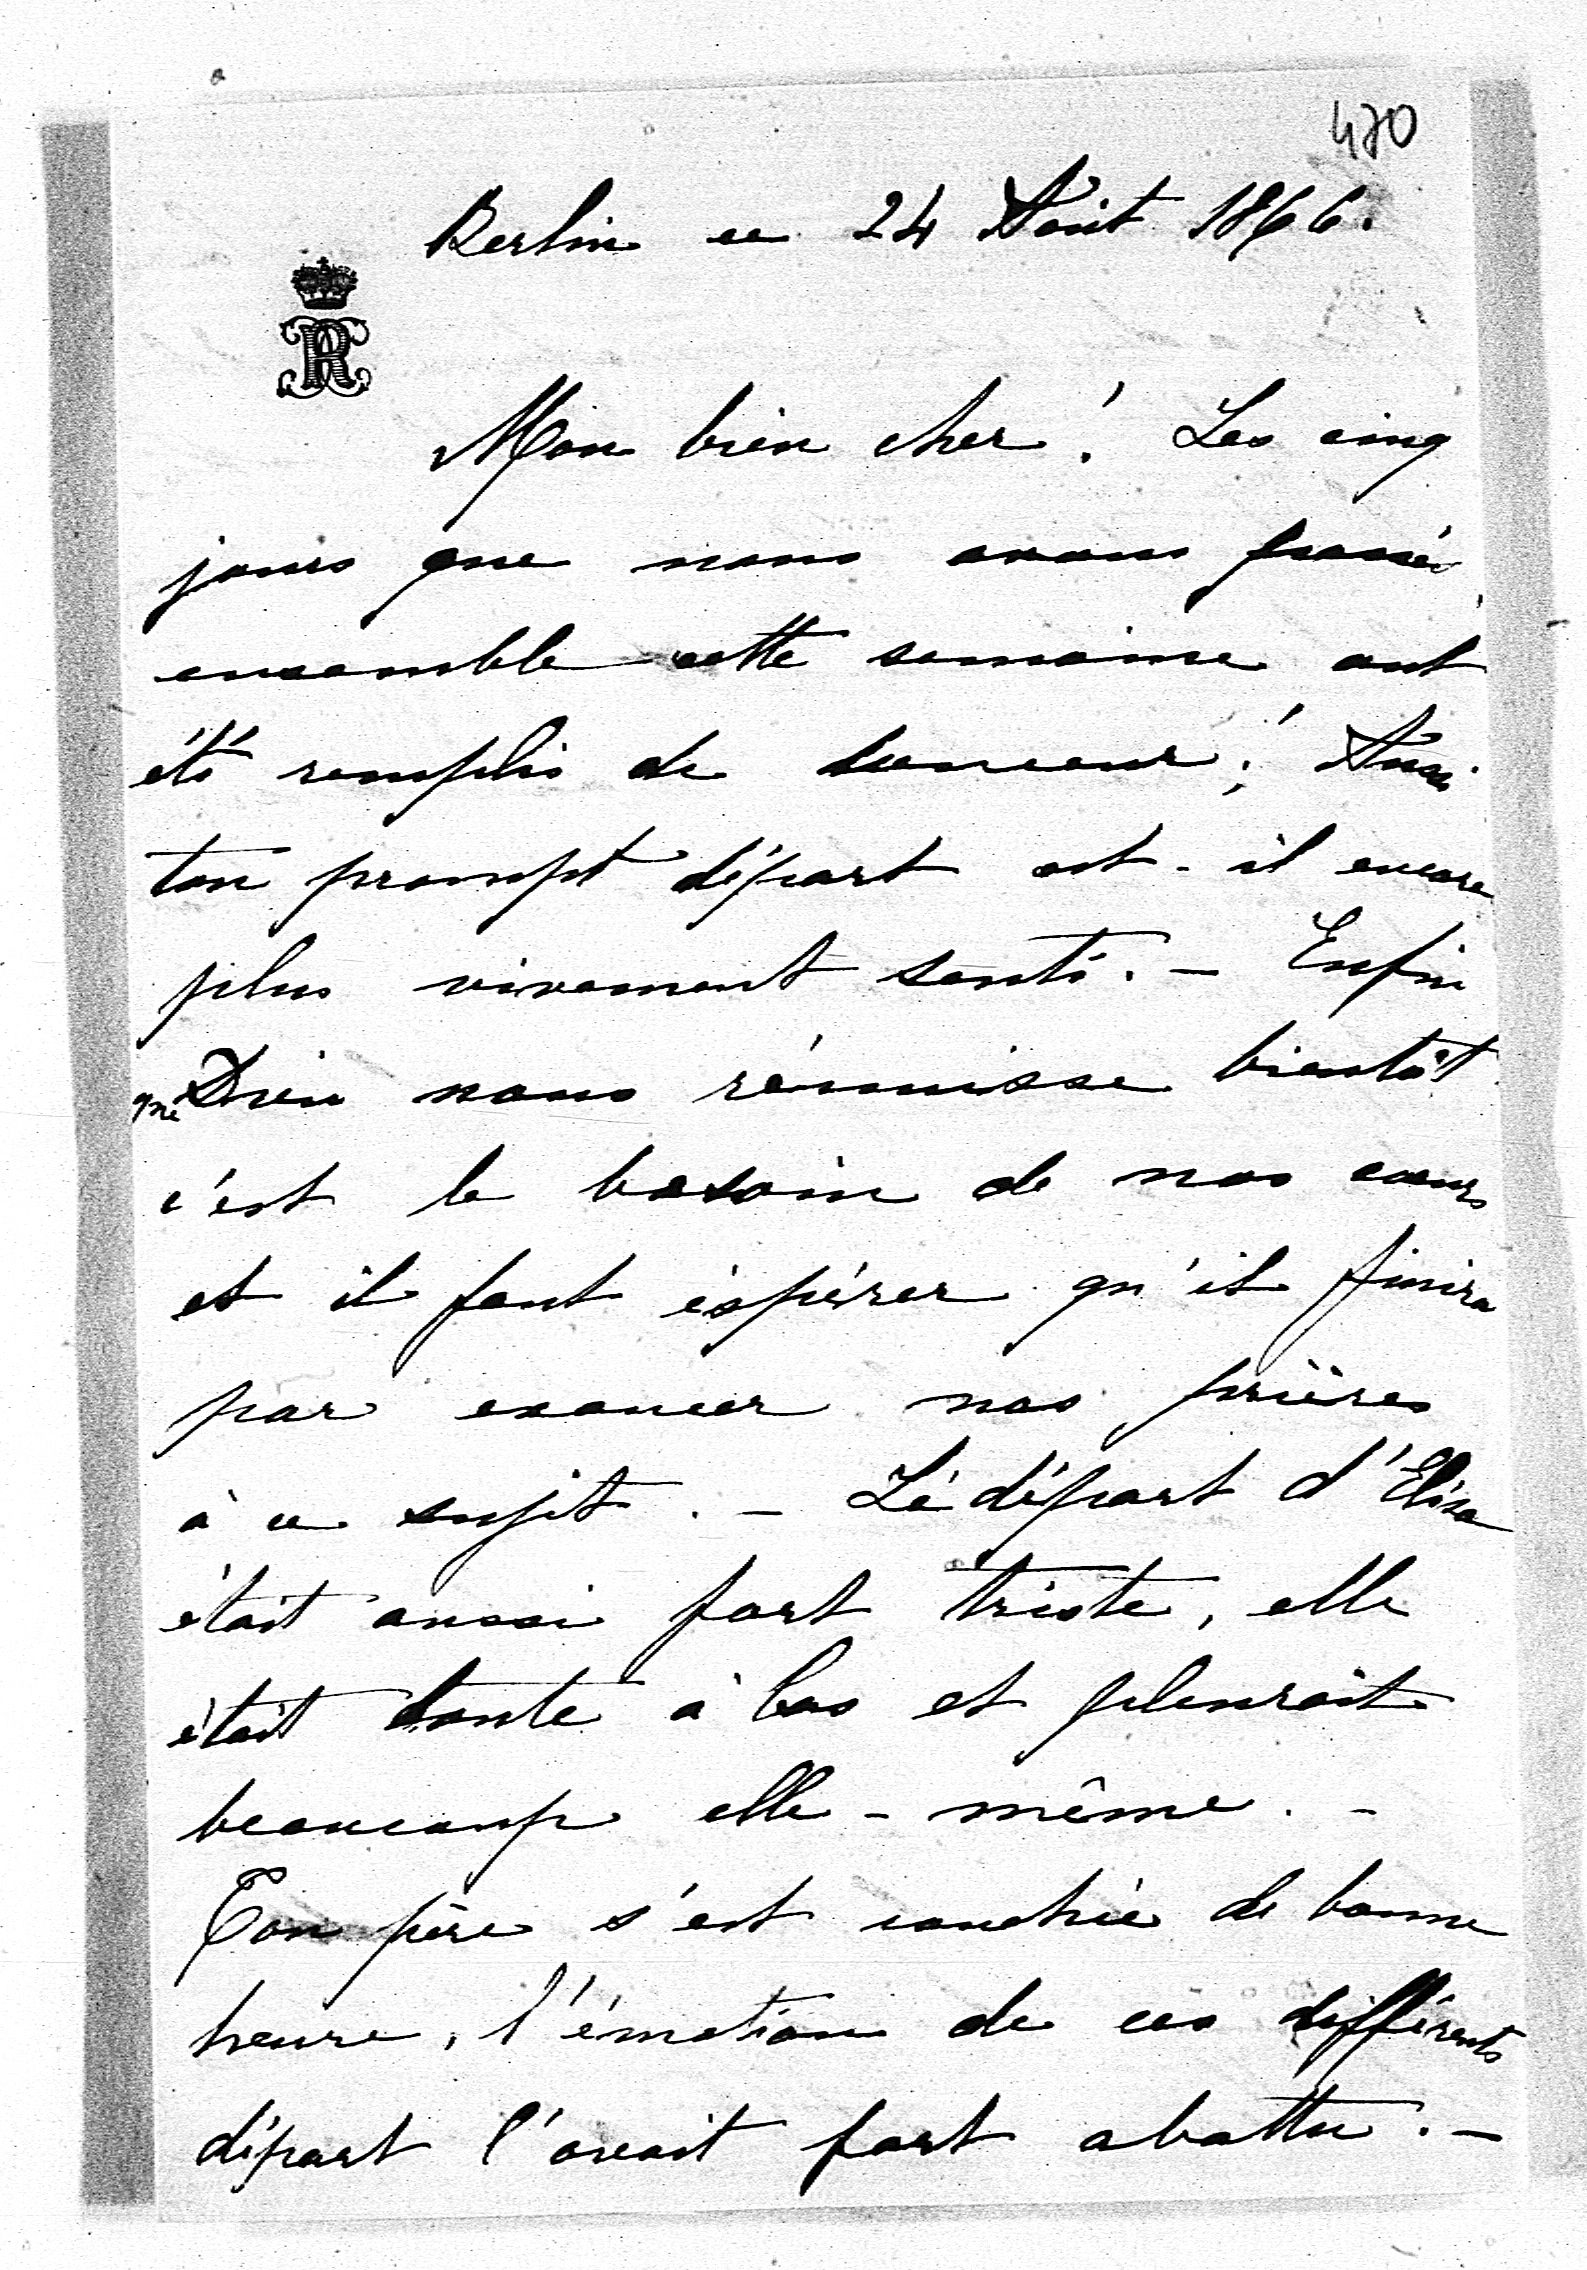 470
Berlin ce 24 Août 1866.
R
Mon bien cher! Les cinq
jours que nous avons passés
ensemble cette semaine ont
été remplis de douceur! Aussi
ton prompt départ est-il encore
plus vivement senti. - Enfin
que Dieu nous réunisse bientôt
c'est le besoin de nos coeurs
et il faut éspérer qu'il finira
par exaucer nos prières
à ce sujet. - Le départ d'Elisa
était aussi fort triste, elle
était toute à bas et pleurait
beaucoup elle-même. -
Ton père s'est couchée de bonne
heure, l'émotion de ces différents
départ l'avait fort abattu. -